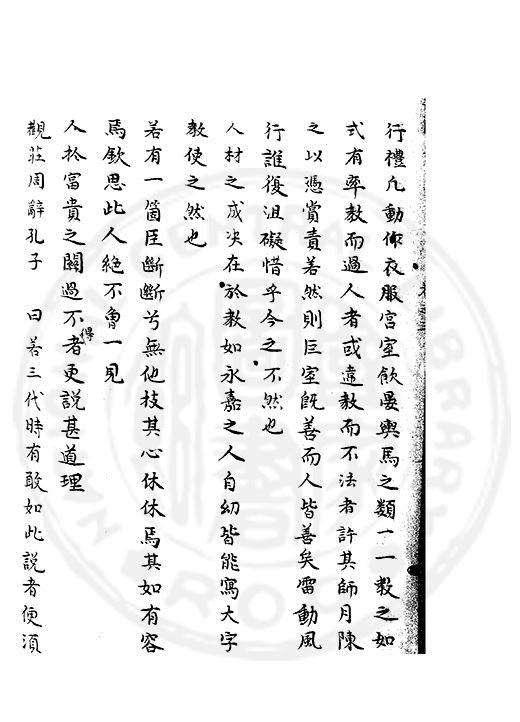 行禮凢動作衣服宫室飲宴輿馬之類一一教之如
式有率教而過人者或違教而不法者許其師月陳
之以憑賞責若然則巨室既善而人皆善矣雷動風
行誰復沮礙惜乎今之不然也
人材之成决在於教如永嘉之人自幼皆能寫大字
教使之然也
若有一箇臣斷斷兮無他技其心休休焉其如有容
焉欽思此人絶不曾一見
人於富貴之關過不得者更說甚道理
觀莊周辭孔子 曰若三代時有敢如此説者便湏